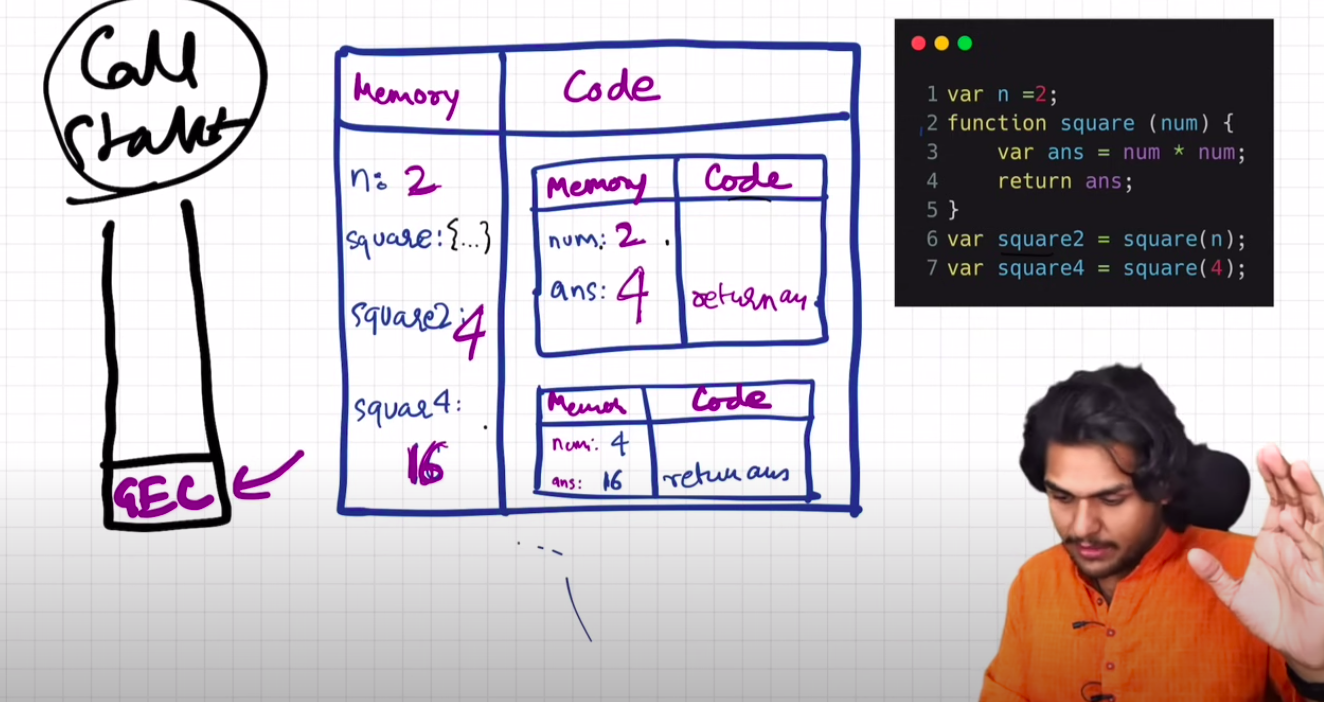 Call
Stack
GEC
Memory
Code
n: 2
square: {...}
square2: 4
squar4:
16
Memory
Code
num: 2
ans: 4
return an
Code
num: 4
ans: 16
return ans
1 var n =2;
2 function square (num) {
3 var ans = num * num;
4 return ans;
5 }
6 var square2 = square(n);
7 var square4 = square(4);